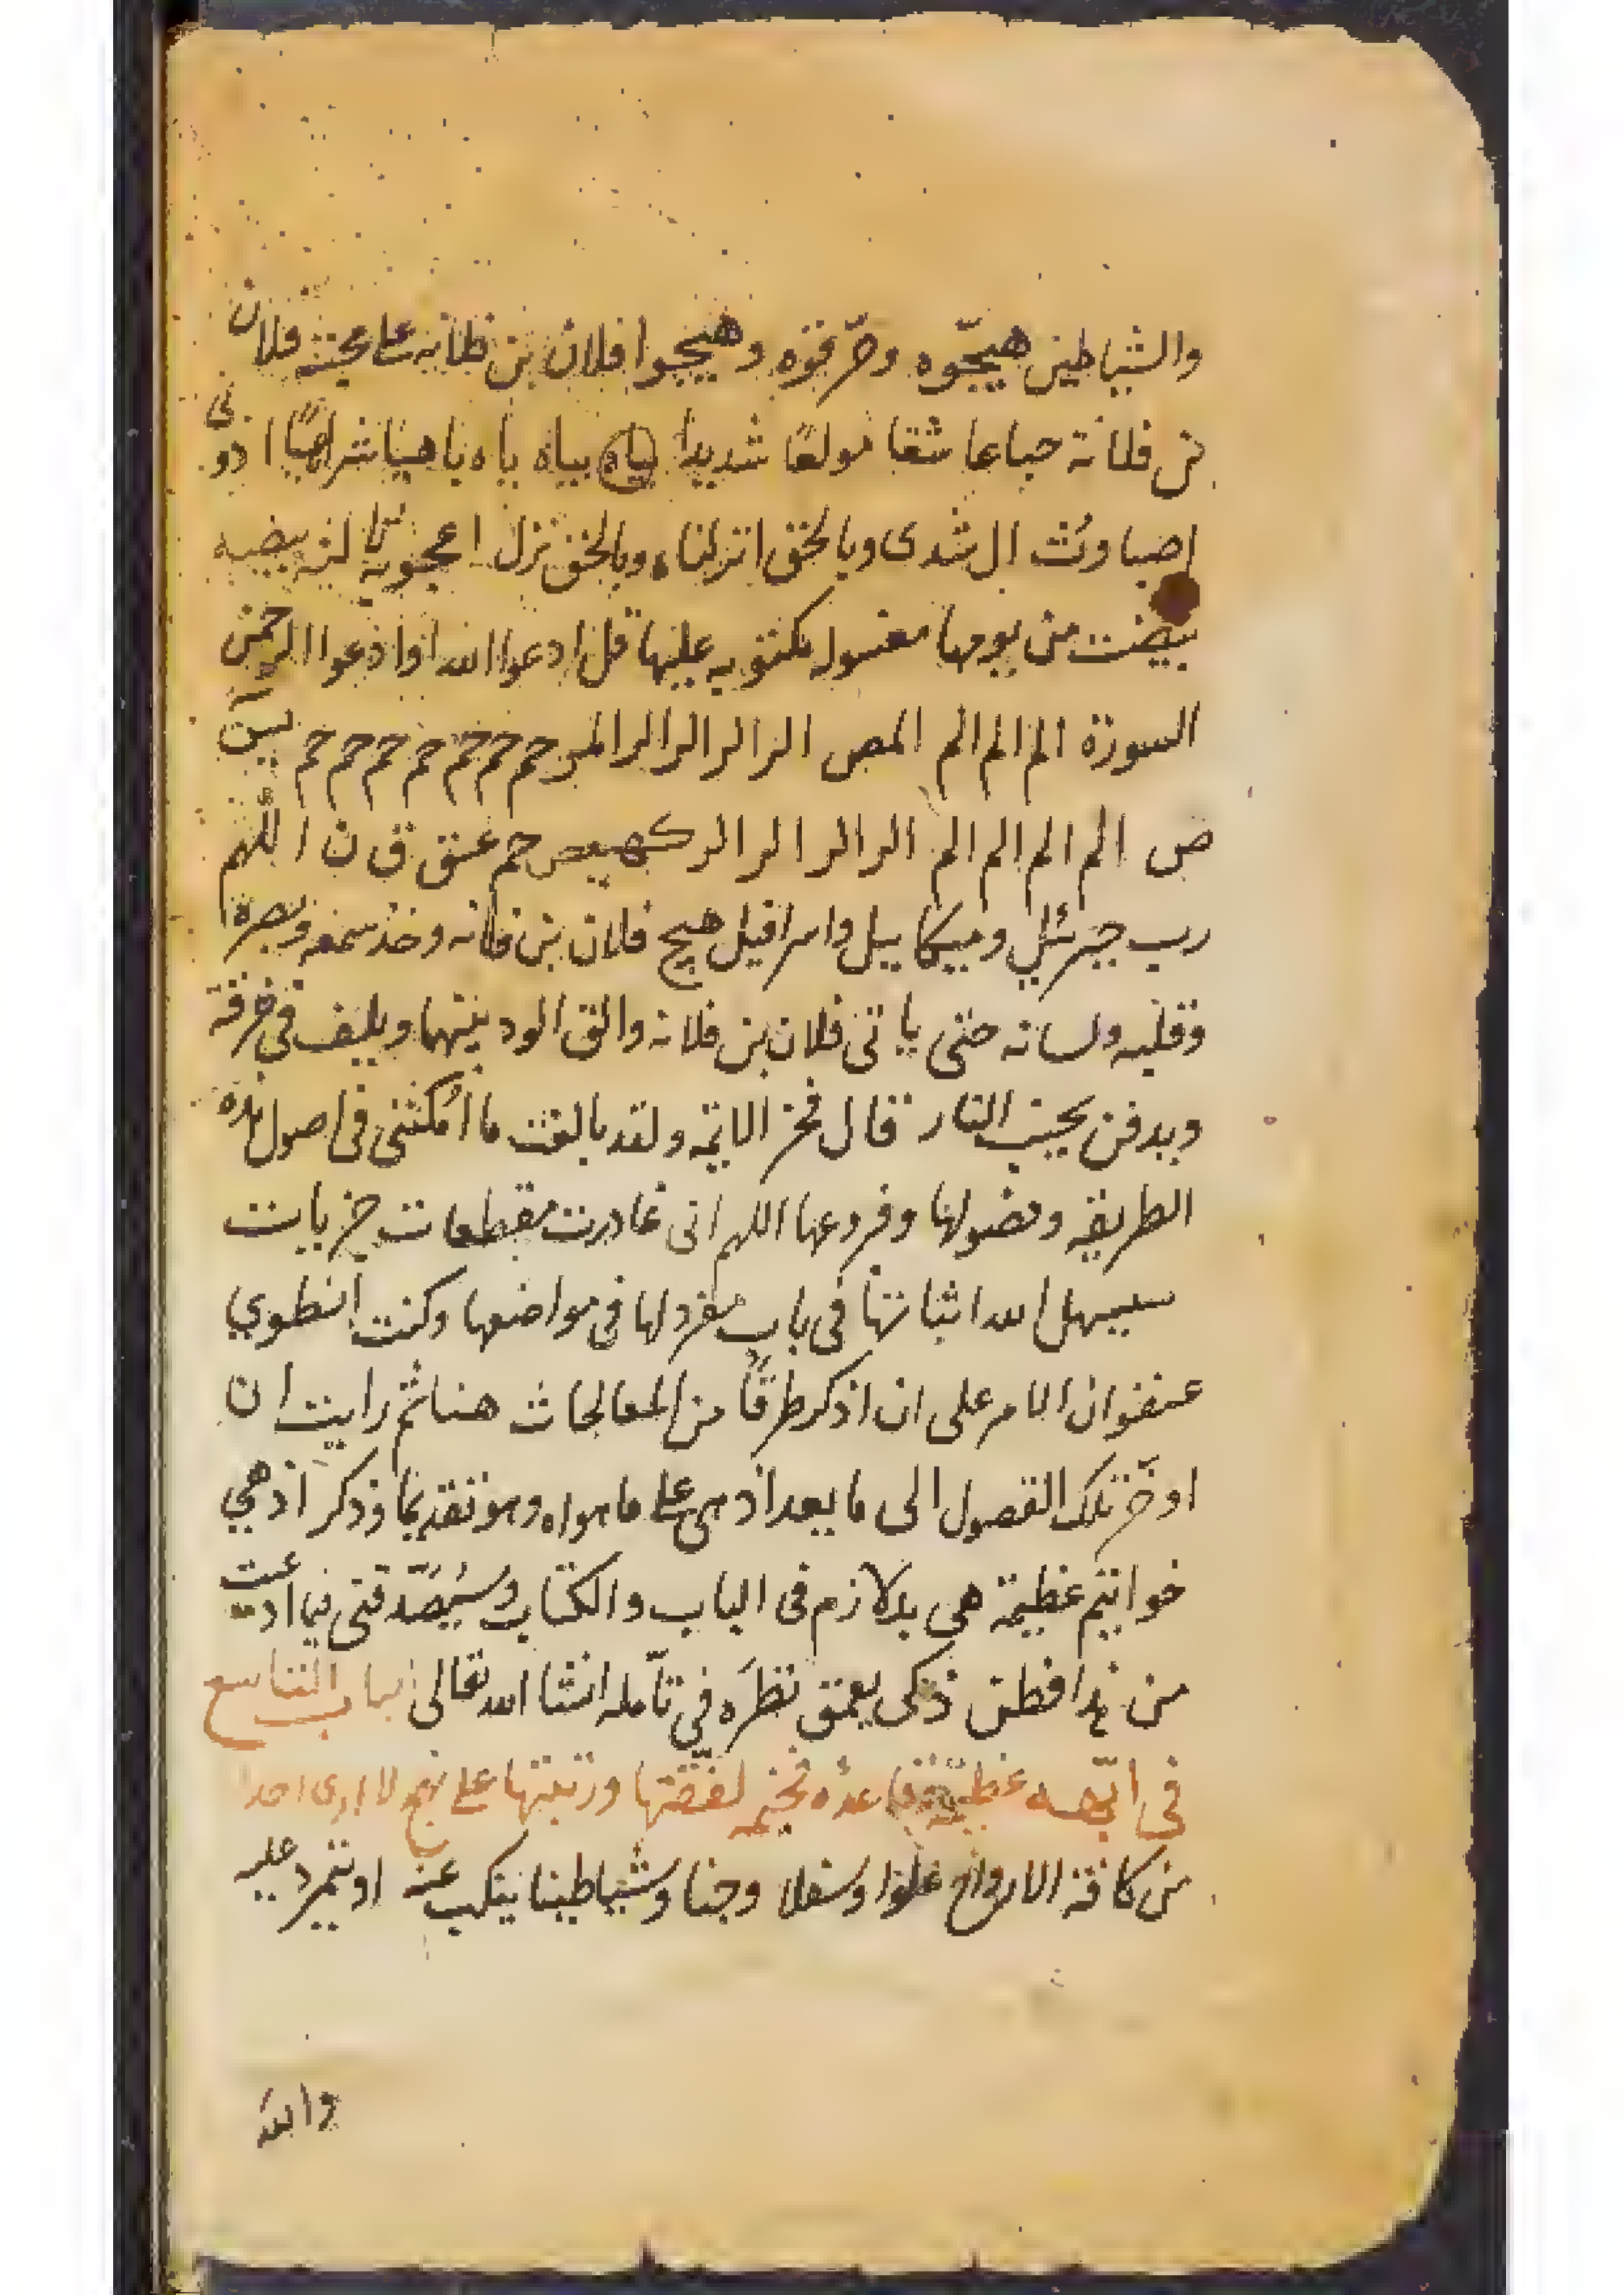 والشياطين هيجّوه وحرّقوه وهيجوا فلان بن فلانه على محبة فلان
بن فلانة حبا عاشقا مولعًا شديدا ياه بياه ياه يا هيا شراهيًا ادونى
اصباوث ال شدى وبالحق انزلناه وبالحق نزل اعجوبة بيضه
بيضت من يومها مغسوله مكتوبه عليها قل ادعوا الله او ادعوا الرحمن
السورة الم الم الم المص الر الر الر الر المر حم حم حم حم حم حم حم يس
ص الم الم الم الم الر الر الر الر كهيعص حم عسق ق ن اللهم
رب جبرئيل وميكاييل واسرافيل هيج فلان بن فلانه وخذ سمعه وبصره
وقلبه ولسانه حتى ياتى فلان بن فلانه والق الود بينهما ويلف فى خرقة
ويدفن بجنب النار قال فخر الايمه ولقد بالغت ما امكننى فى اصول هذه
الطريقه وفصولها وفروعها اللهم انى غادرت مقطعات جزيات
سيسهل الله اثباتها فى باب مفرد لها فى مواضعها وكنت انطوي
عنفوان الامر على ان اذكر طرقًا من المعالجات هنا ثم رايت ان
اوخّر تلك الفصول الى ما يعد اذ هى على ما هواه وهو تقديما وذكر اذ هي
خواتيم عظيمة هى بلازم فى الباب والكتاب وسيصدّقنى فيما ادعيت
من هذا فطن ذكى يعمق نظرَه في تأمله انشا الله تعالى الباب التاسع
فى ابّهه عظيمة قاعده فخيمه لفقتها ورتبتها على نهج لا ارى احدا
من كافة الارواح علوا وسفلا وجنا وشياطينا ينكب عنه او يتمرد عليه
والله